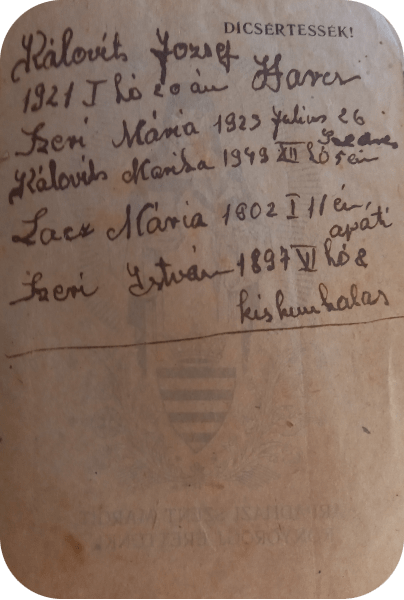 DICSÉRTESSÉK!
Kálovits József
1921 I hó 20 án Harcs
Szeri Mária 1923 Julius 26
Kálovits Marika 1949 XII hó 5 én
Lacz Mária 1802 I 11 én,
apáti
Szeri István 1897 VI hó 8
kiskunhalas